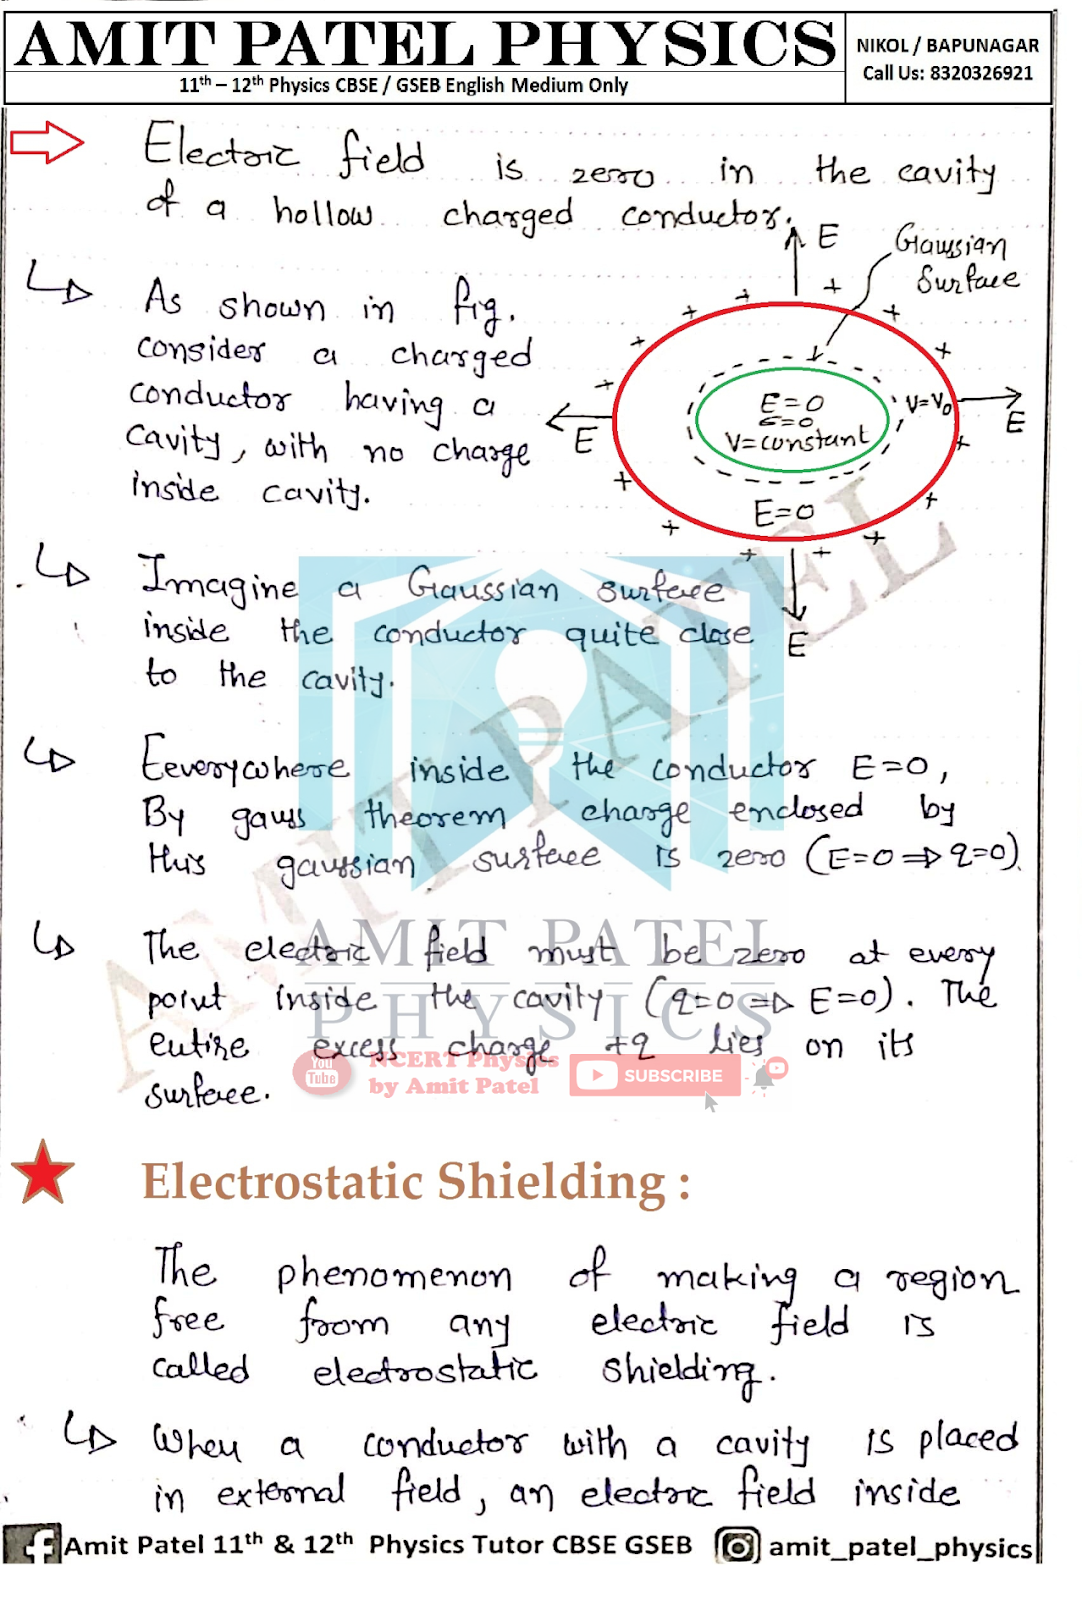 AMIT PATEL PHYSICS
11th – 12th Physics CBSE / GSEB English Medium Only
NIKOL / BAPUNAGAR
Call Us: 8320326921
Electric field is zero in the cavity
of a hollow charged conductor.
E
Gaussian
Surface
As shown in fig.
consider a charged
conductor having a
cavity, with no charge
inside cavity.
E=0
E=0
V=constant
V=V₀
E
E
E=0
E
Imagine a Gaussian surface
inside the conductor quite close
to the cavity.
Eeverywhere inside the conductor E=0,
By gauss theorem charge enclosed by
this gaussian surface is zero (E=0⇒q=0).
The electric field must be zero at every
point inside the cavity (q=0⇒E=0). The
entire excess charge +q lies on its
surface.
AMIT PATEL
PHYSICS
AMIT PATEL
You
Tube
NCERT Physics
by Amit Patel
SUBSCRIBE
Electrostatic Shielding :
The phenomenon of making a region
free from any electric field is
called electrostatic shielding.
When a conductor with a cavity is placed
in external field, an electric field inside
Amit Patel 11th & 12th Physics Tutor CBSE GSEB
amit_patel_physics